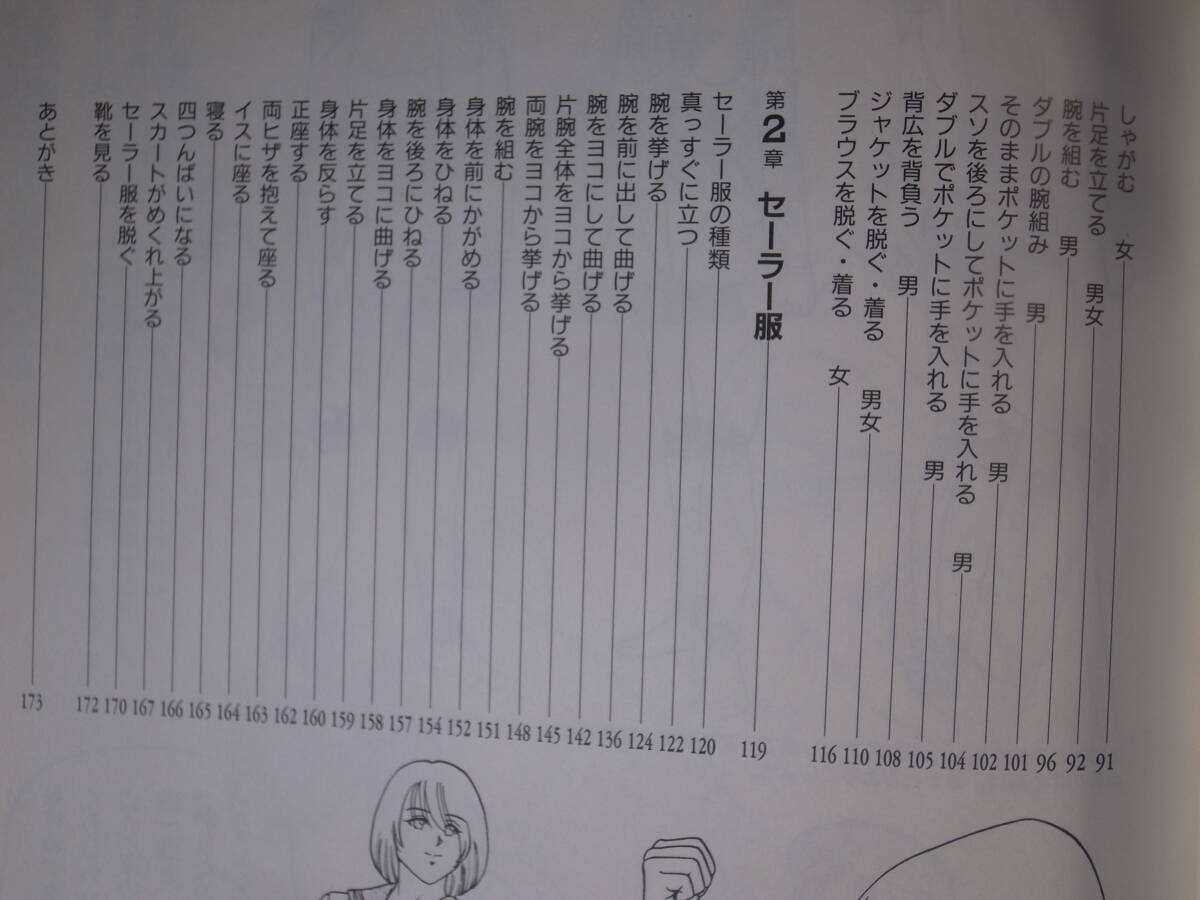 しゃがむ 女 91
片足を立てる 男女 92
腕を組む 男 96
ダブルの腕組み 男 101
そのままポケットに手を入れる 男 102
スソを後ろにしてポケットに手を入れる 男 104
ダブルでポケットに手を入れる 男 105
背広を背負う 男 108
ジャケットを脱ぐ・着る 男女 110
ブラウスを脱ぐ・着る 女 116
第2章 セーラー服 119
セーラー服の種類 120
真っすぐに立つ 122
腕を挙げる 124
腕を前に出して曲げる 136
腕をヨコにして曲げる 142
片腕全体をヨコから挙げる 145
両腕をヨコから挙げる 148
腕を組む 151
身体を前にかがめる 152
身体をひねる 154
腕を後ろにひねる 157
身体をヨコに曲げる 158
片足を立てる 159
身体を反らす 160
正座する 162
両ヒザを抱えて座る 163
イスに座る 164
寝る 165
四つんばいになる 166
スカートがめくれ上がる 167
セーラー服を脱ぐ 170
靴を見る 172
あとがき 173